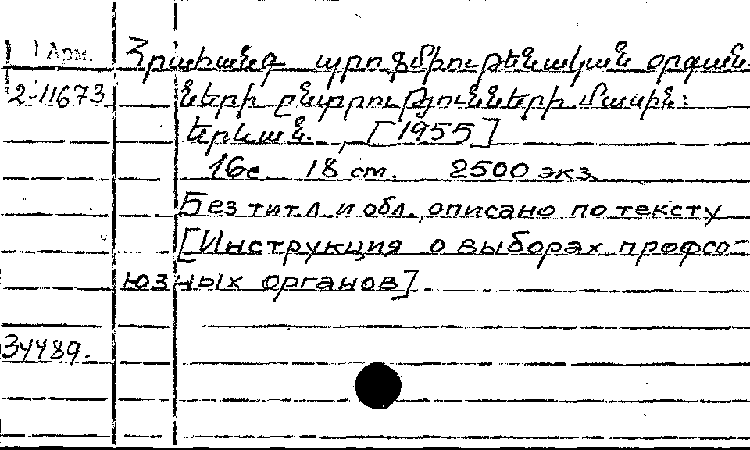 Арм. Հրահանգ պրոֆմիութենական օրգան-
2-11673 ների ընտրությունների մասին:
Երևան. , [1955]
16с. 18 cm. 2500 экз.
Без тит. л. и обл., описано по тексту
[Инструкция о выборах профсо-
юзных органов].
34489.